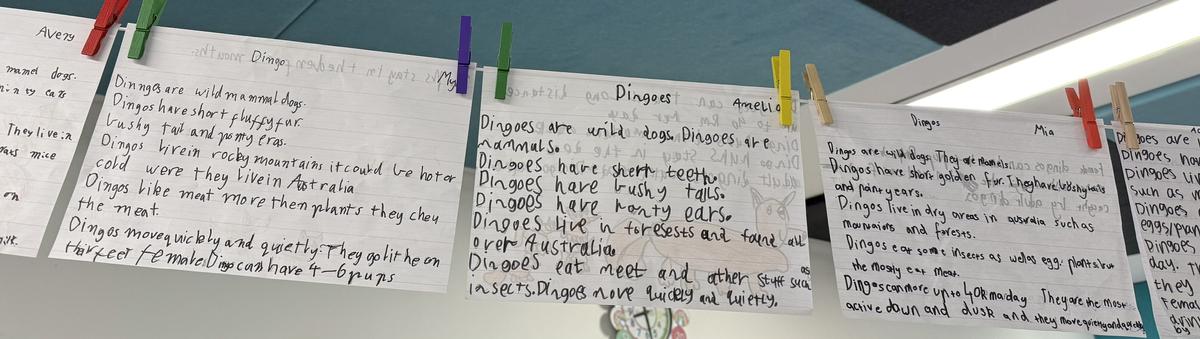 Avery
mamel dogs.
They live in
mice
on
Dingo
My
Dinngos are wild mammal dogs.
Dingos have short fluffy fur.
bushy tail and ponty eras.
Dingos live in rocky mountains it could be hot or
cold were they live in Australia
Dingos like meat more then plants they cheu
the meat.
Dingos move quickely and quietly. They go lithe on
feet female. Dingo can have 4-6 pups
Dingoes
Amelia
Dingoes are wild dogs. Dingoes are
mammals.
Dingoes have short teeth.
Dingoes have bushy tails.
Dingoes have ponty ears.
Dingoes live in foresests and found all
over Australia.
Dingoes eat meet and other stuff such as
insects. Dingoes move quickly and quietly.
Dingos
Mia
Dingos are wild dogs. They are mamels.
Dingos have short golden fur. They have bushy tails
and ponty ears.
Dingos live in dry areas in australia such as
mountains and forests.
Dingos eat some insects as well as egg. plants but
the mostly eat meat.
Dingos can move up to 40km a day They are the most
active down and dusk and they move
Dingoes are
Dingoes
Dingoes liv
such as
Dingoes
eggs/plan
Dingoes
day.
they
Femal
by